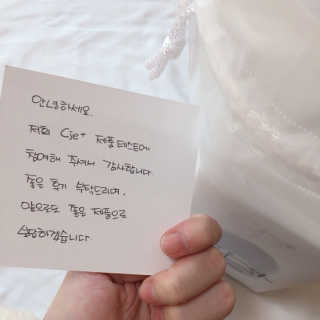 안녕하세요.
저희 Cje+ 제품 테스트에
참여해 주셔서 감사합니다.
좋은 후기 부탁드리며,
앞으로도 좋은 제품으로
보답하겠습니다